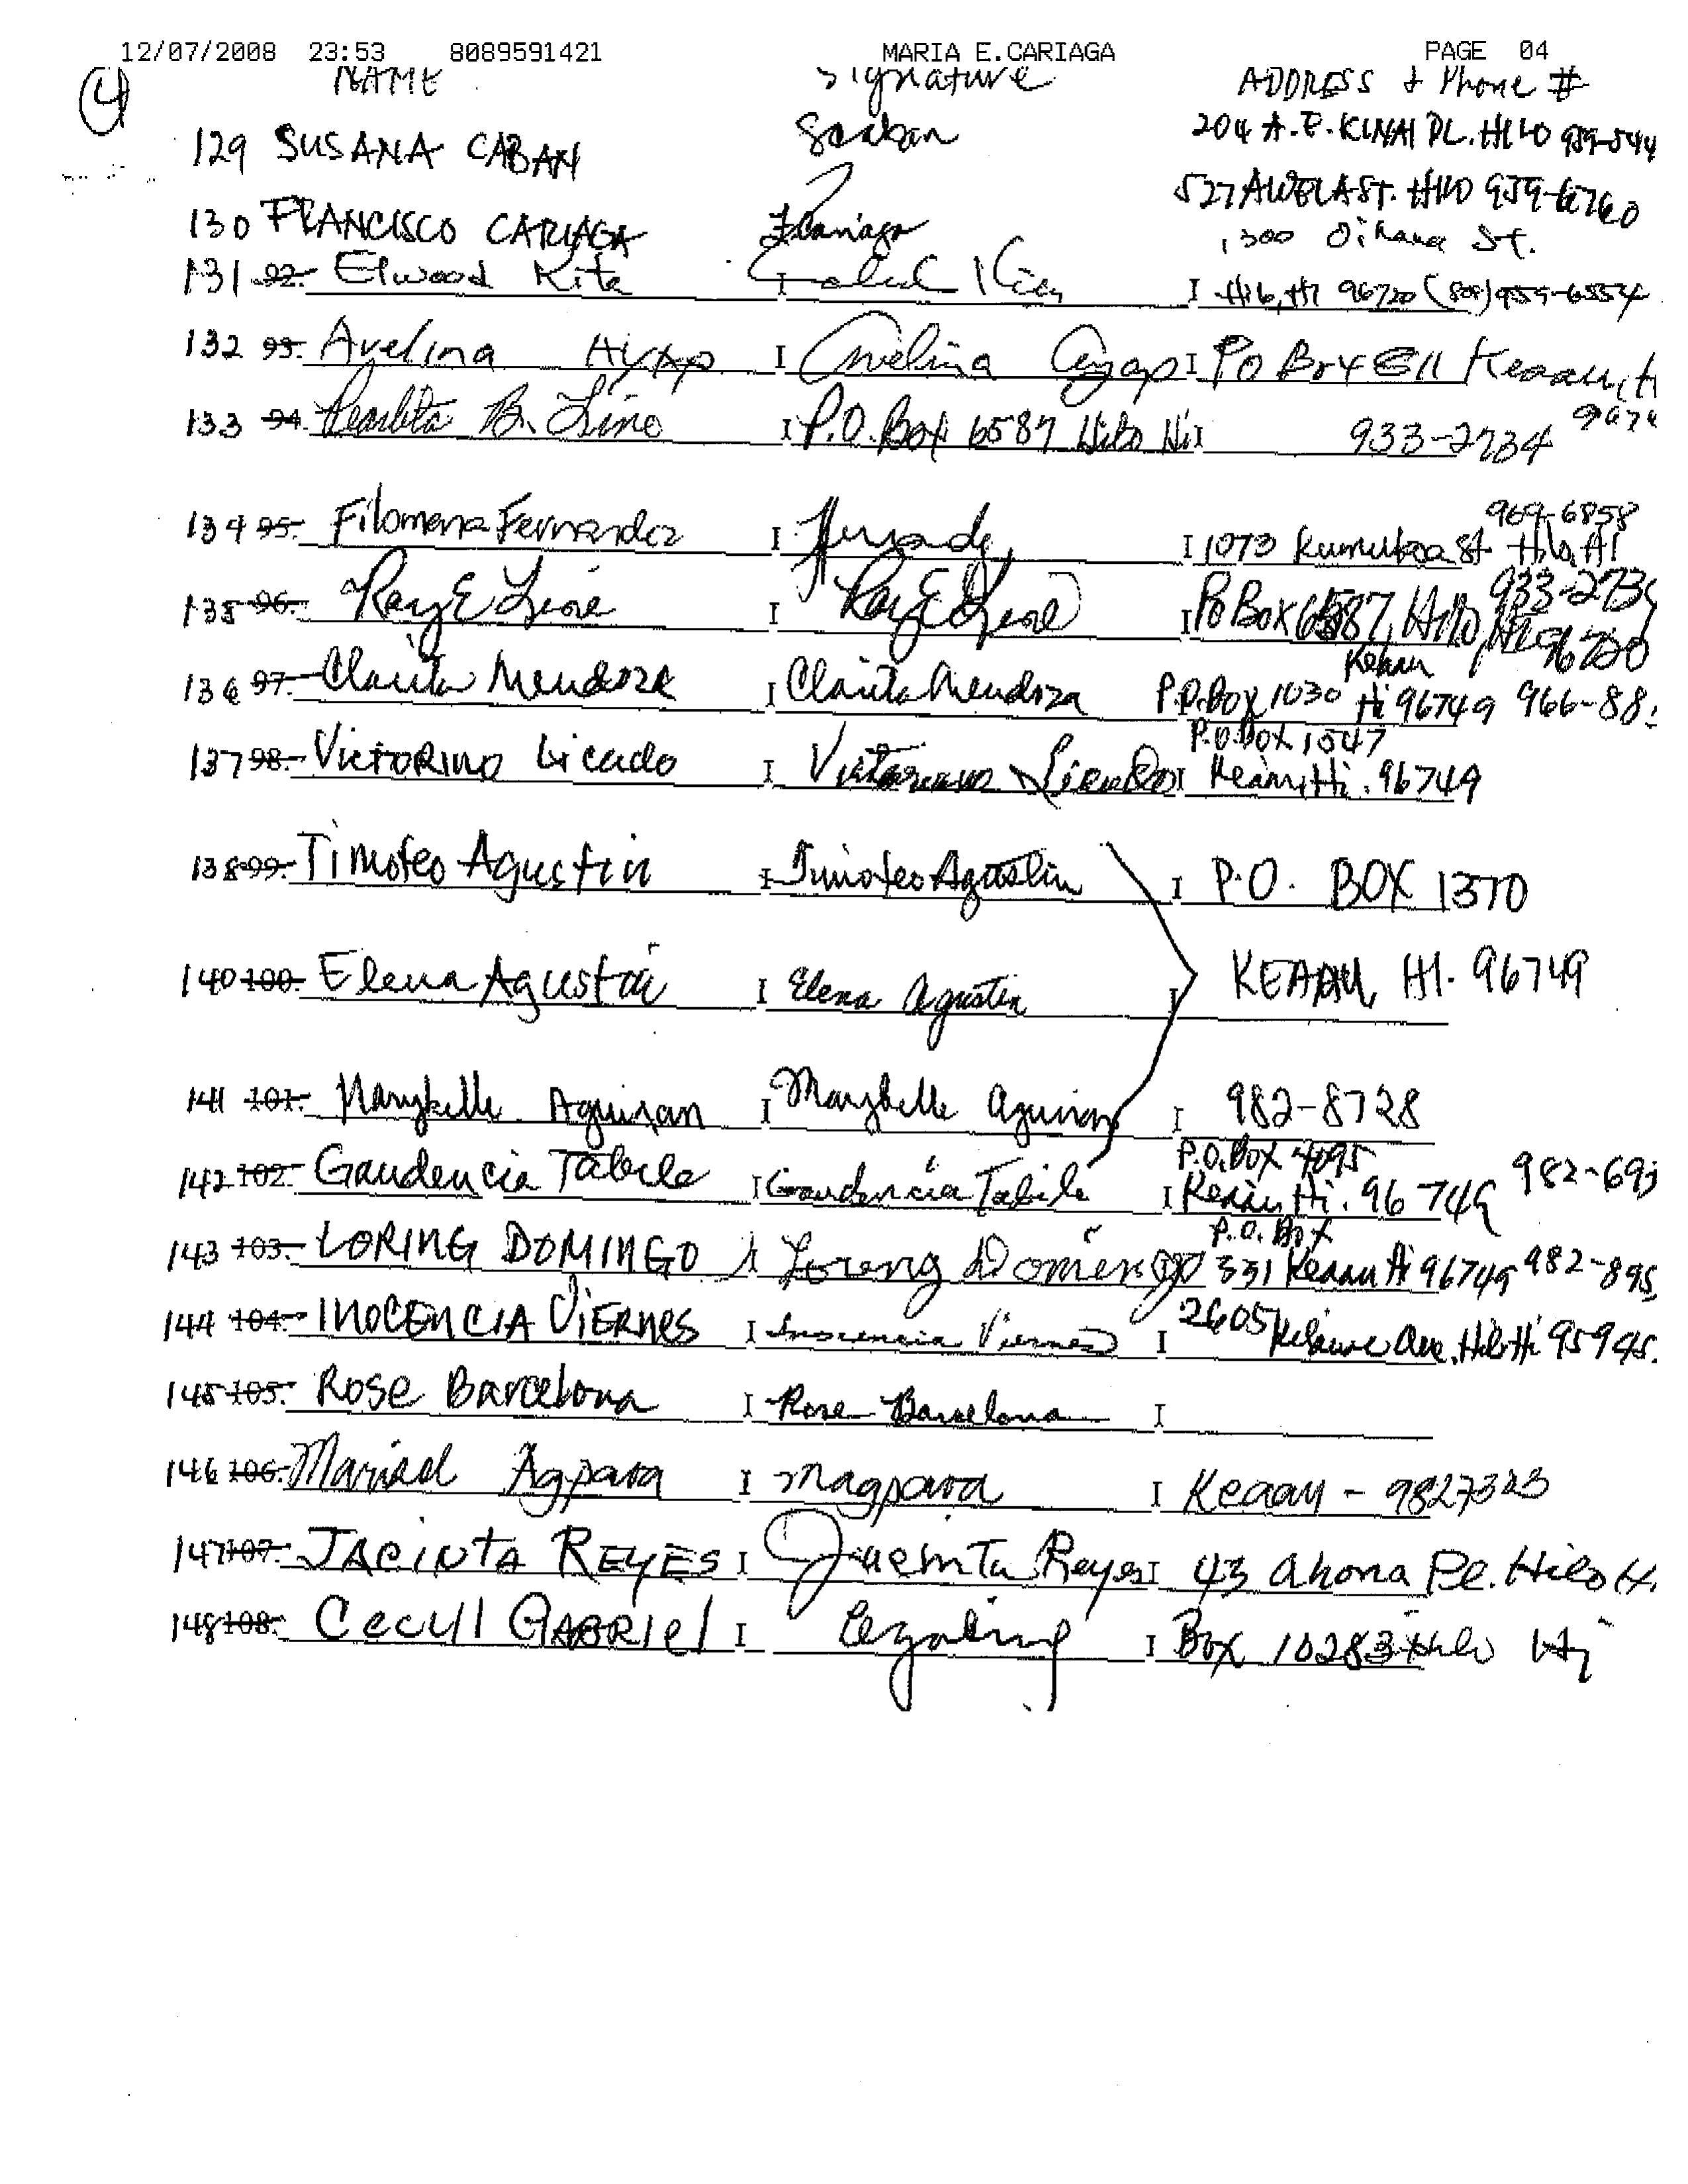 12/07/2008 23:53 8089591421 MARIA E.CARIAGA PAGE 04
4 NAME Signature ADDRESS & Phone #
129 SUSANA CABAN Scaban 204 A.E. KINAI PL. HILO 959-544
130 FRANCISCO CARIAGA Fcariaga 527 AWELA ST. HILO 959-6760
1300 Oihana St.
131 92. Elwood Kita I I Hilo, HI 96720 (808) 959-6554
132 93. Avelina Ayap I Avelina Ayap I PO Box 611 Keaau, H
9674
133 94. Pearlita B. Lino I P.O. Box 6587 Hilo Hi I 933-2734
969-6858
134 95. Filomena Fernandez I I 1073 St Hilo, HI
933-273
135 96. Ray E Lino I Ray E Lino I PO Box 6587, Hilo, 96720
Keaau
136 97. Clarita Mendoza I Clarita Mendoza P.O. Box 1030 Hi 96749 966-88
P.O. Box 1547
137 98. VICTORINO Licudo I Victorino Licudo I Keaau, Hi. 96749
138 99. Timoteo Agustin I Timoteo Agustin I P.O. BOX 1370
140 100. Elena Agustin I Elena Agustin I KEAAU, HI. 96749
141 101. Marybelle Aguinan I Marybelle Aguinan I 982-8728
P.O. Box 4095
142 102. Gaudencia Tabile I Gaudencia Tabile I Keaau, Hi. 96749 982-693
P.O. Box
143 103. LORING DOMINGO I Loreng Domingo 331 Keaau Hi 96749 982-895
144 104. INOCENCIA VIERNES I Inocencia Viernes I 2605 Kilauea Ave. Hilo Hi 95945
145 105. Rose Barcelona I Rose Barcelona I
146 106. Marisol Agpawa I Magpawa I Keaau - 9827323
147 107. JACINTA REYES I Jacinta Reyes I 43 Ahona Pl. Hilo H.
148 108. Cecyl GABRIEL I I Box 10283 Hilo Hi